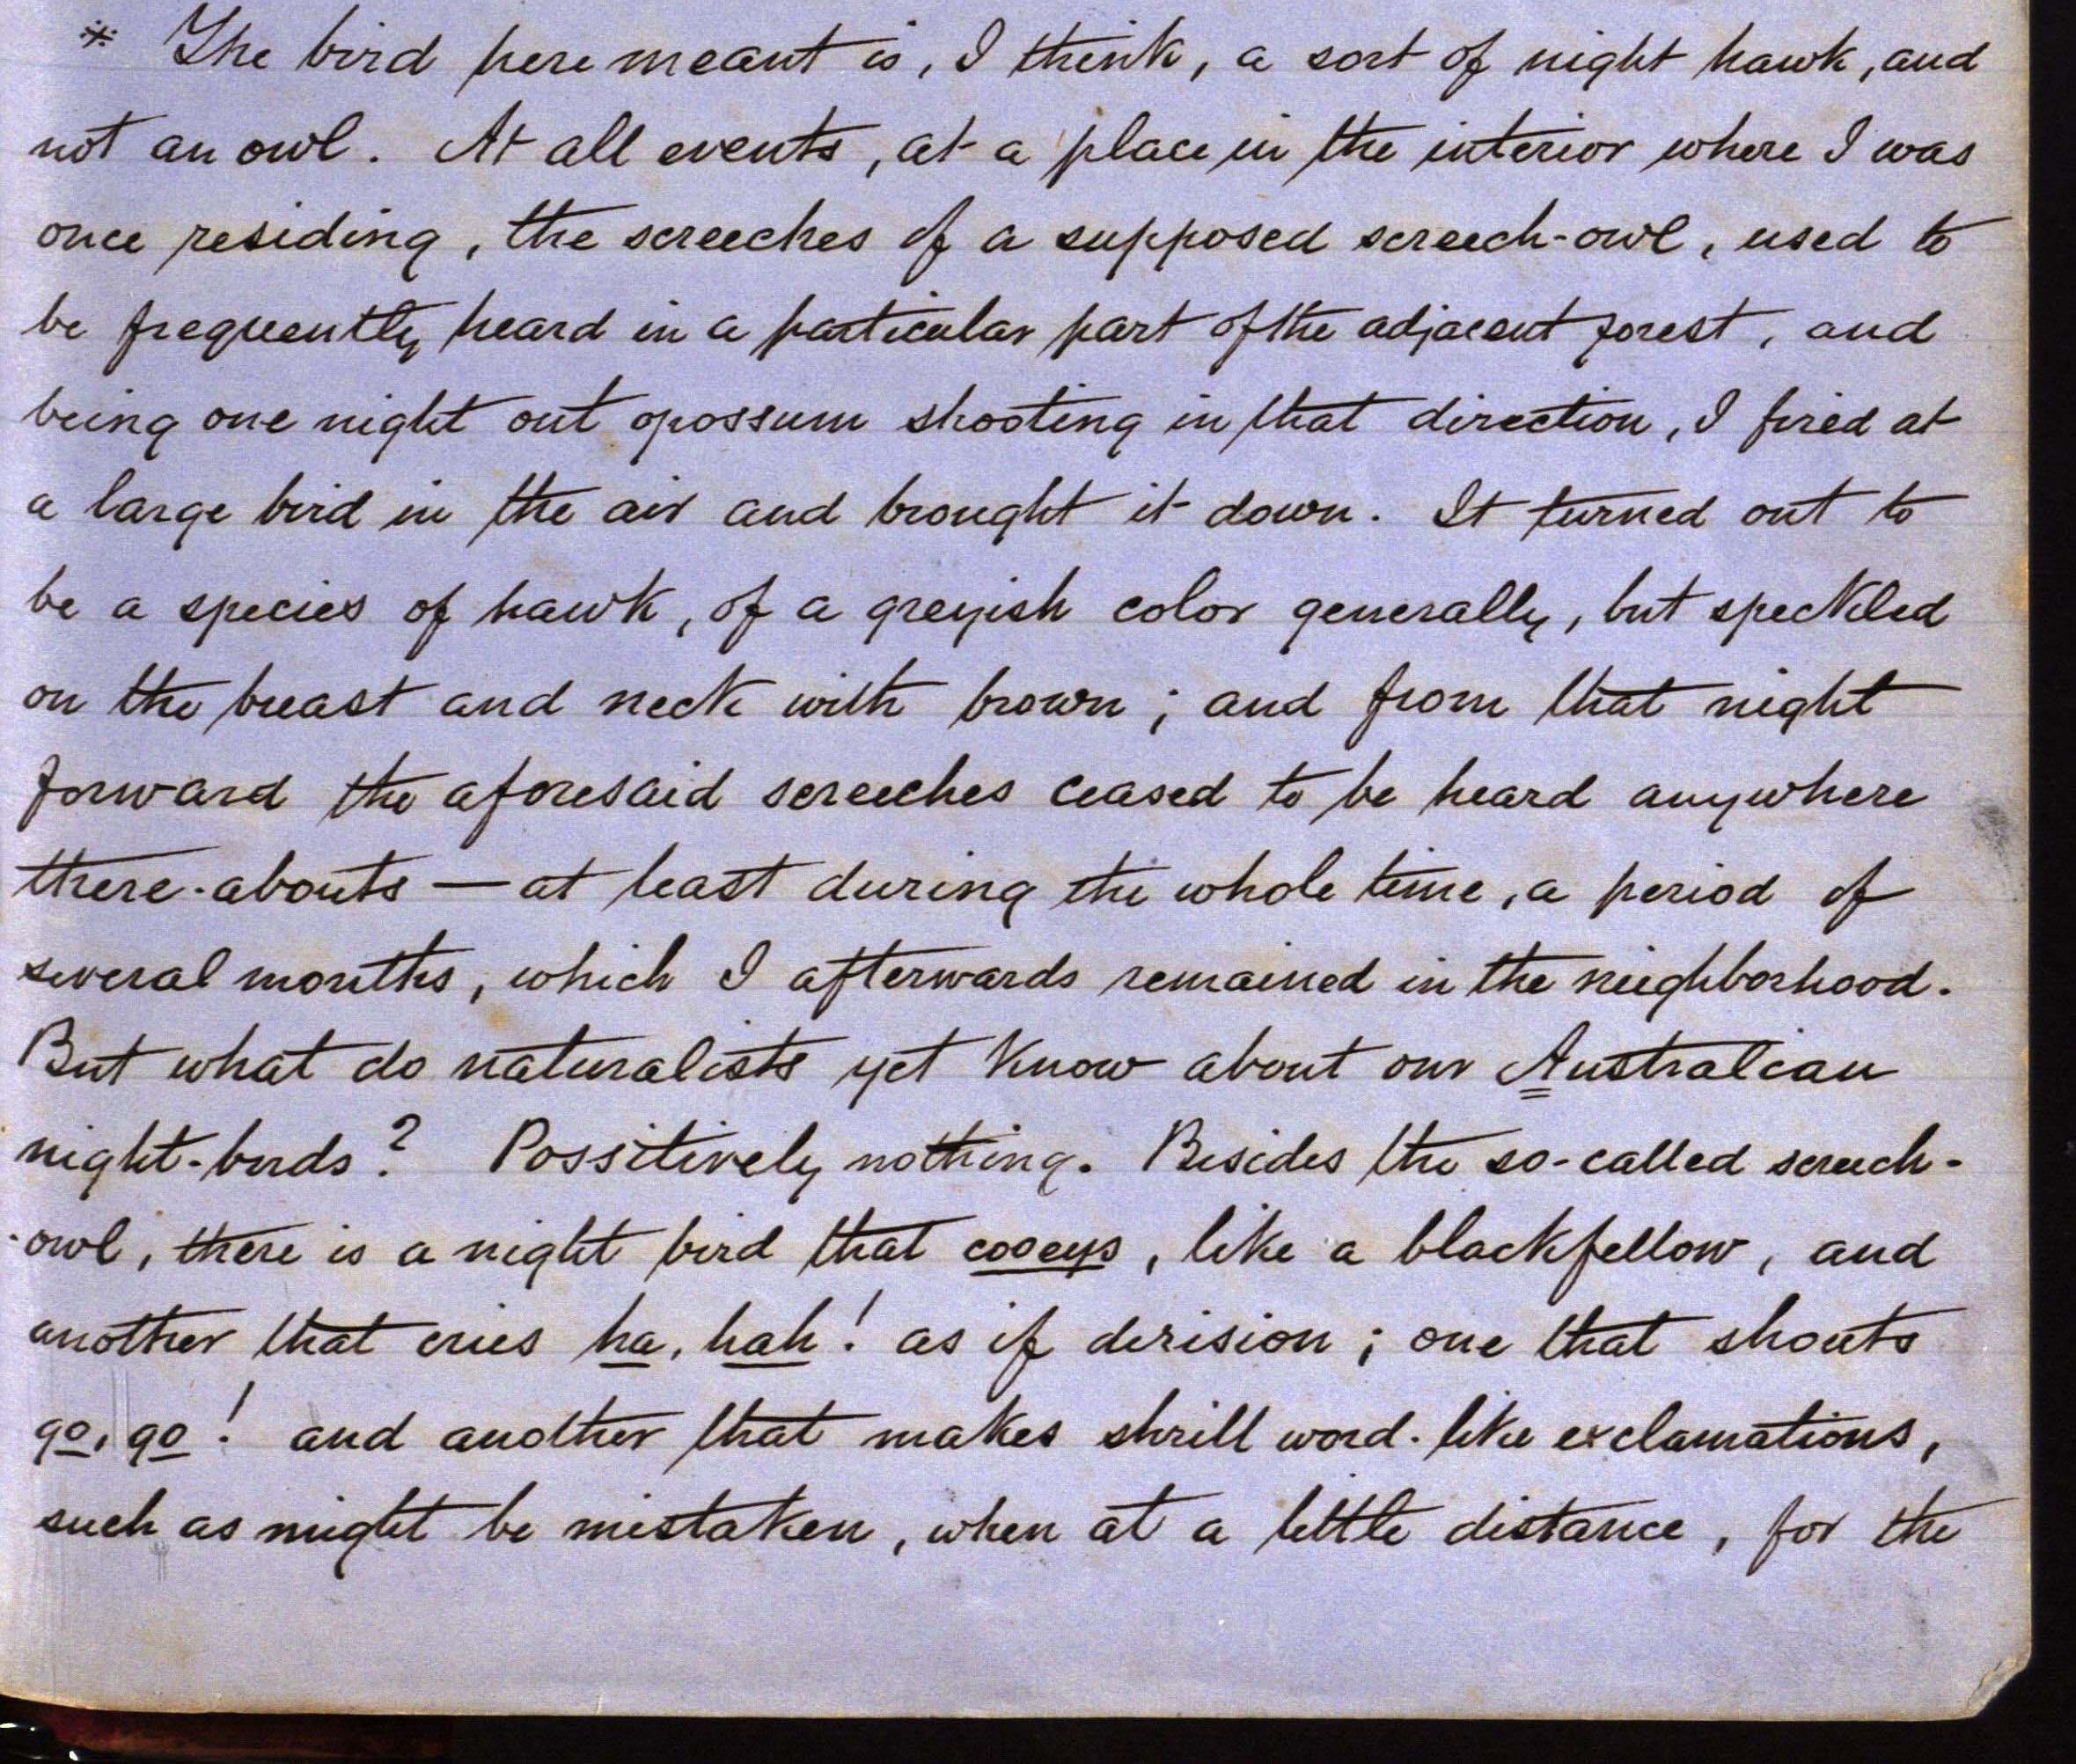 * The bird here meant is, I think, a sort of night hawk, and
not an owl. At all events, at a place in the interior where I was
once residing, the screeches of a supposed screech-owl, used to
be frequently heard in a particular part of the adjacent forest, and
being one night out opossum shooting in that direction, I fired at
a large bird in the air and brought it down. It turned out to
be a species of hawk, of a greyish color generally, but speckled
on the breast and neck with brown; and from that night
forward the aforesaid screeches ceased to be heard anywhere
there-abouts — at least during the whole time, a period of
several months, which I afterwards remained in the neighborhood.
But what do naturalists yet know about our Australian
night-birds? Possitively nothing. Besides the so-called screech-
-owl, there is a night bird that cooeys, like a blackfellow, and
another that cries ha, hah! as if derision; one that shouts
go, go! and another that makes shrill word-like exclamations,
such as might be mistaken, when at a little distance, for the